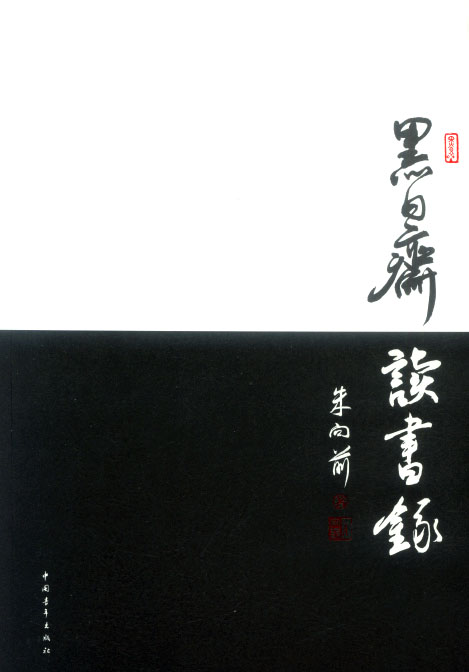 黑白齋
讀書錄
朱向前
中国青年出版社